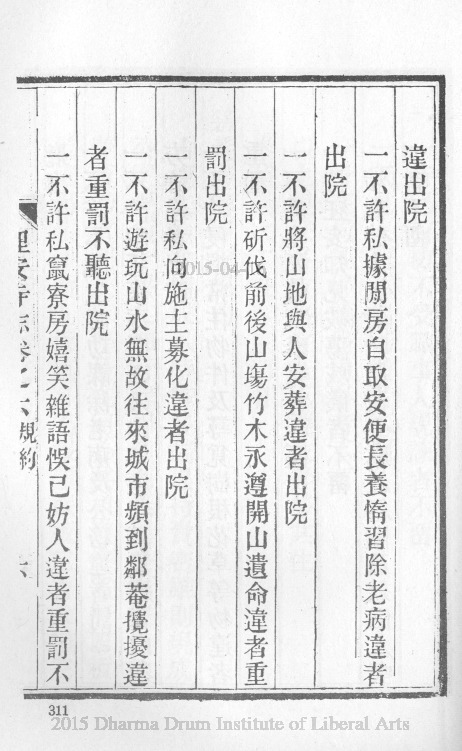 違出院
一不許私據閒房自取安便長養惰習除老病違者
出院
一不許將山地與人安葬違者出院
一不許斫伐前後山塲竹木永遵開山遺命違者重
罰出院
一不許私向施主募化違者出院
一不許遊玩山水無故往來城市頻到鄰菴攪擾違
者重罰不聽出院
一不許私竄寮房嬉笑雜語悞己妨人違者重罰不
理安寺志卷之六規約 六
311
2015 Dharma Drum Institute of Liberal Arts